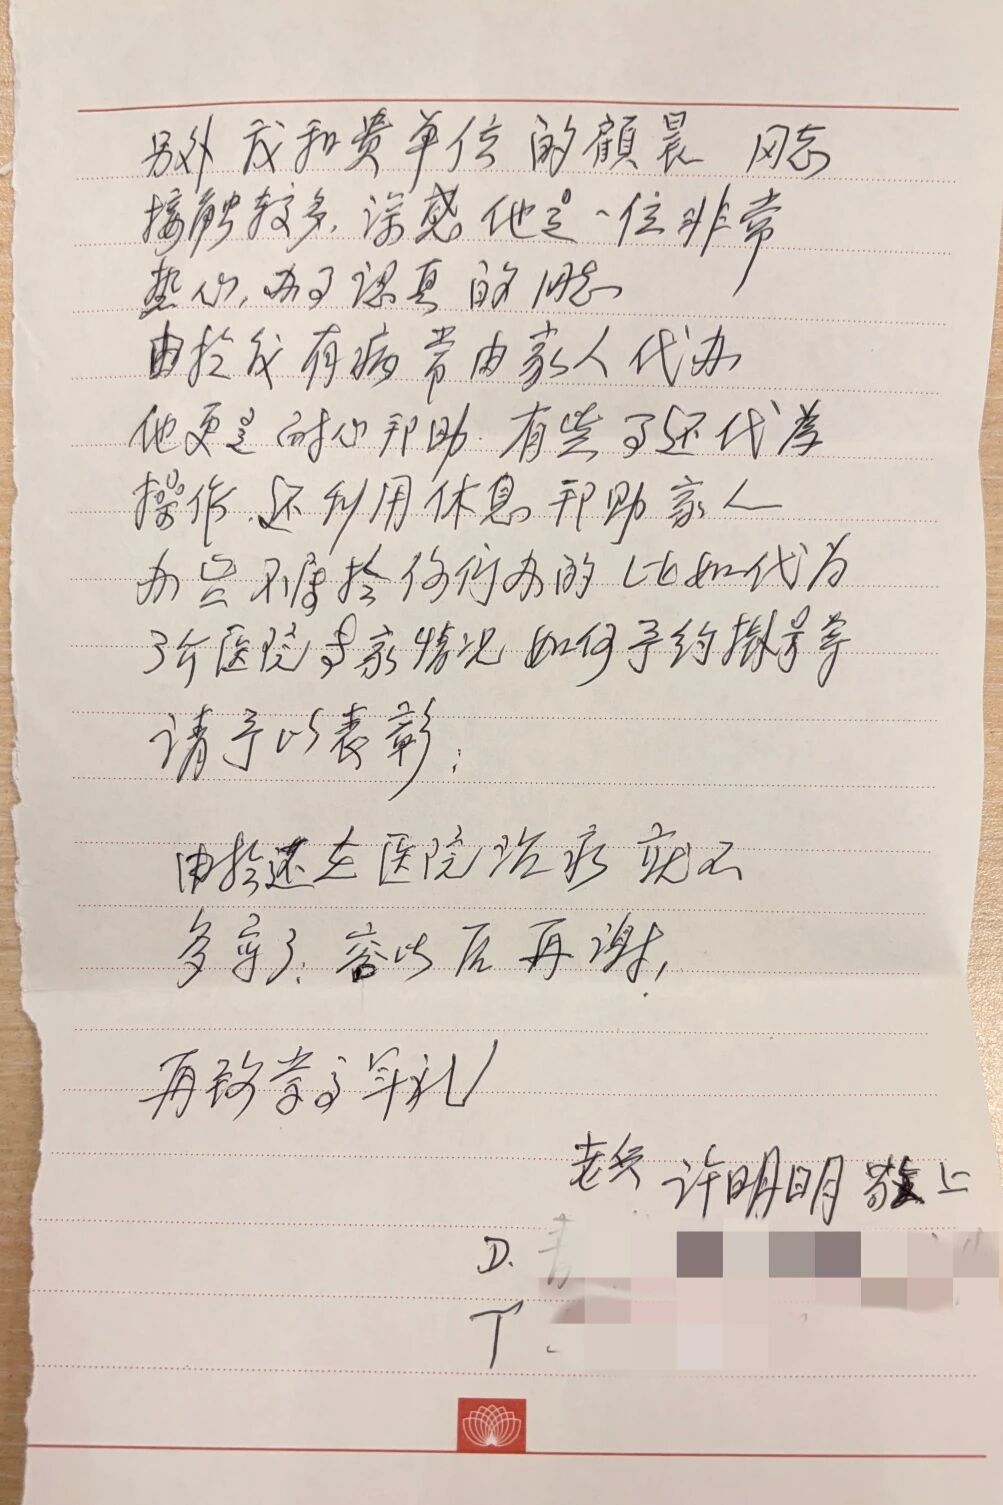 另外我和贵单位的顧晨 同志
接触较多,深感他是一位非常
热心,办事认真的同志
由於我有病常由家人代办
他更是耐心帮助.有些事还代为
操作.还利用休息帮助家人
办些不属於你行办的 比如代为
了介医院专家情况 如何予约掛号等
请予以表彰;
由於还在医院治病 就不
多写了.容以后再谢,
再致崇高军礼
老兵 许明明 敬上
D.
T